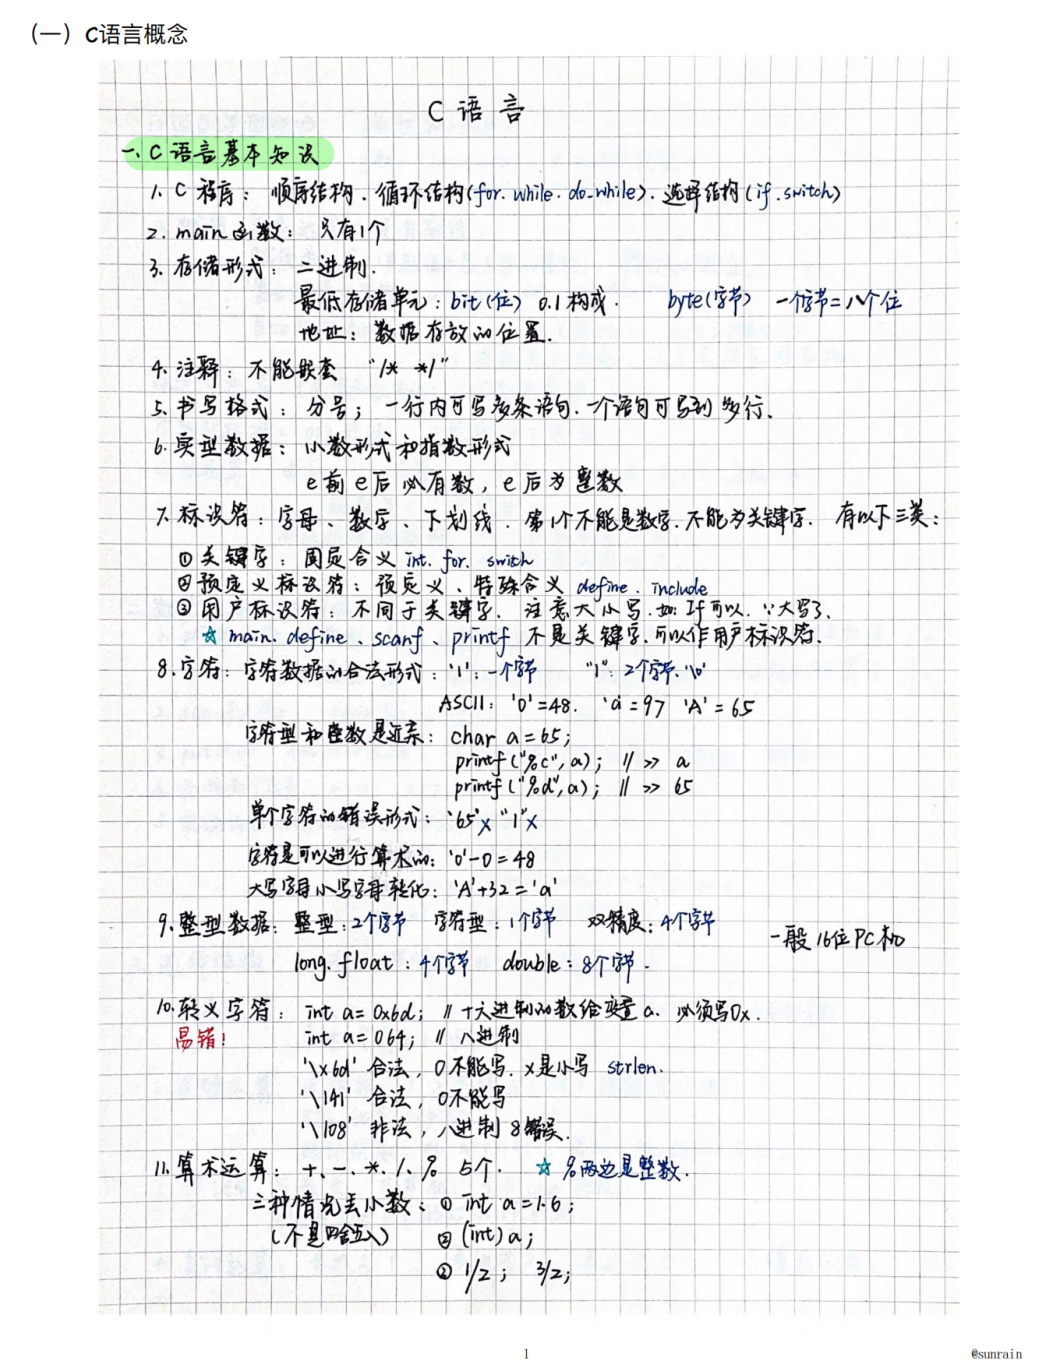 （一）C语言概念
C 语言
一. C 语言基本知识
1. C 程序： 顺序结构. 循环结构(for. while. do-while). 选择结构(if. switch)
2. main 函数： 只有1个
3. 存储形式： 二进制.
最低存储单元：bit(位) 0.1 构成. byte(字节) 一个字节=八个位
地址： 数据存放的位置.
4. 注释： 不能嵌套 "/* */"
5. 书写格式： 分号； 一行内可写多条语句. 一个语句可写到多行.
6. 实型数据： 小数形式和指数形式
e前e后必有数, e后为整数
7. 标识符：字母、数字、下划线. 第1个不能是数字. 不能为关键字. 有以下三类：
① 关键字：固定含义 int. for. swich
② 预定义标识符：预定义、特殊含义 define. include
③ 用户标识符：不同于关键字. 注意大小写. 如: If可以. ∵大写了.
☆ main. define、scanf、printf 不是关键字, 可以作用户标识符.
8. 字符：字符数据的合法形式：'1': 一个字节 "1": 2个字节. '\0'
ASCII: '0'=48. 'a'=97 'A'=65
字符型和整数是近亲： char a=65;
printf("%c", a); // >> a
printf("%d", a); // >> 65
单个字符的错误形式：'65'x "1"x
字符是可以进行算术的：'0'-0=48
大写字母小写字母转化：'A'+32='a'
9. 整型数据： 整型：2个字节 字符型：1个字节 双精度：4个字节
一般 16位PC机
long. float：4个字节 double：8个字节.
10. 转义字符： int a= 0x6d; // 十六进制的数给变量a. 必须写0x.
易错！ int a= 064; // 八进制
'\x6d' 合法, 0不能写. x是小写 strlen.
'\141' 合法, 0不能写
'\108' 非法, 八进制 8错误.
11. 算术运算： +、-、*、/、% 5个. ☆ %两边是整数.
三种情况丢小数：① int a=1.6;
(不是四舍五入) ② (int) a;
② 1/2; 3/2;
1
@sunrain